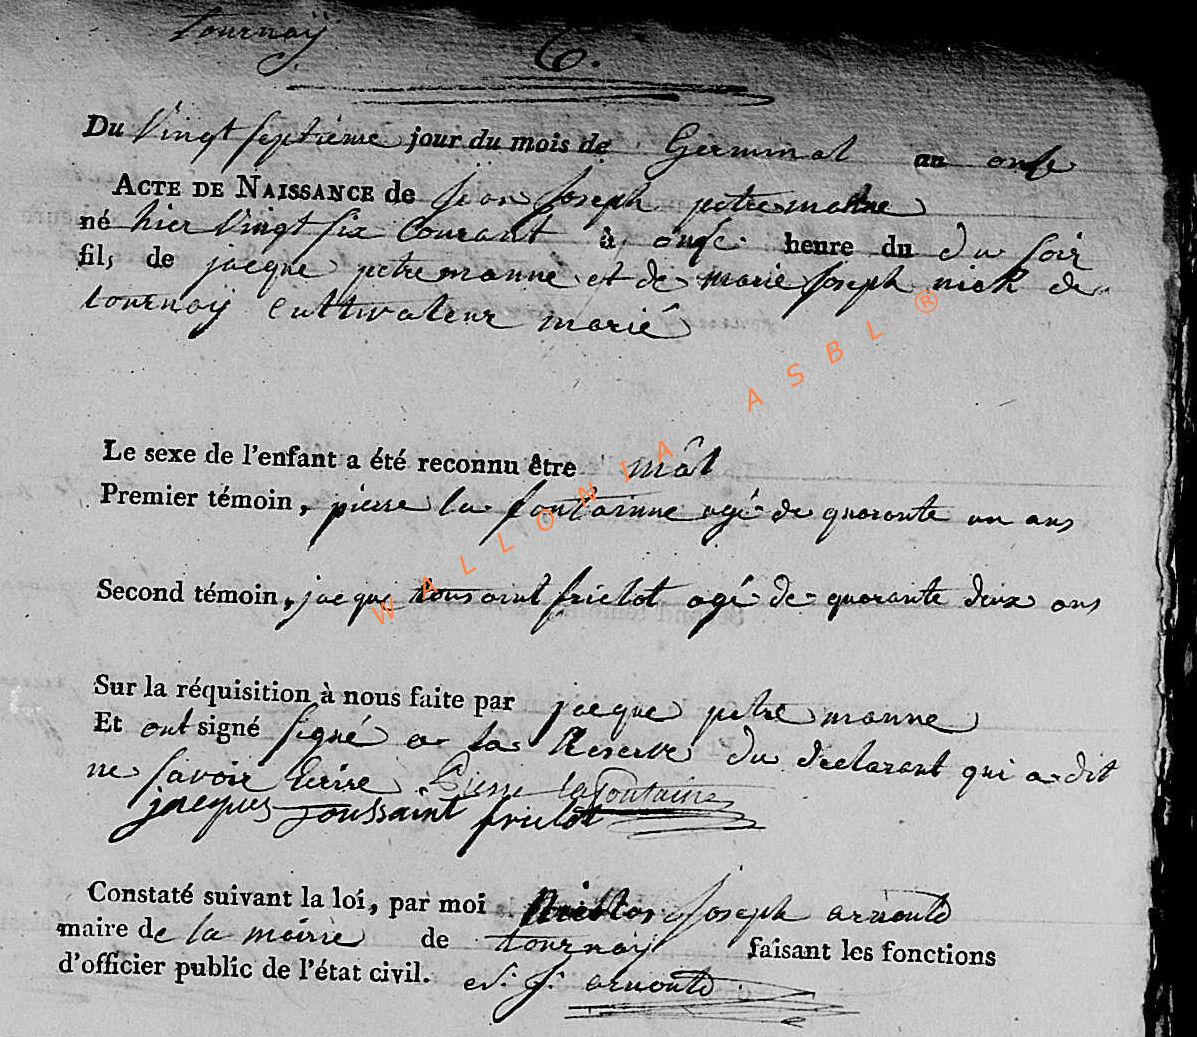 tournaÿ
6.
Du Vingt septieme jour du mois de Germinal an onse
ACTE DE NAISSANCE de jean joseph petremanne
né hier Vingt six Courant à onse heure du du soir
fils de jacque petremanne et de marie joseph nick de
tournaÿ Cultivateur marié
Le sexe de l'enfant a été reconnu être mâl
Premier témoin, pierre la fontainne agé de quarante un ans
Second témoin, jacque tousaint frielot agé de quarante deux ans
Sur la réquisition à nous faite par jacque petremanne
Et ont signé signé a la Reserve du declarant qui a dit
ne savoir Ecrire Pierre la Fontaine
jacques toussaint frielot
Constaté suivant la loi, par moi joseph arnould
maire de la mairie de tournaÿ faisant les fonctions
d'officier public de l'état civil. n. j. arnould
WALLONIA ASBL ®